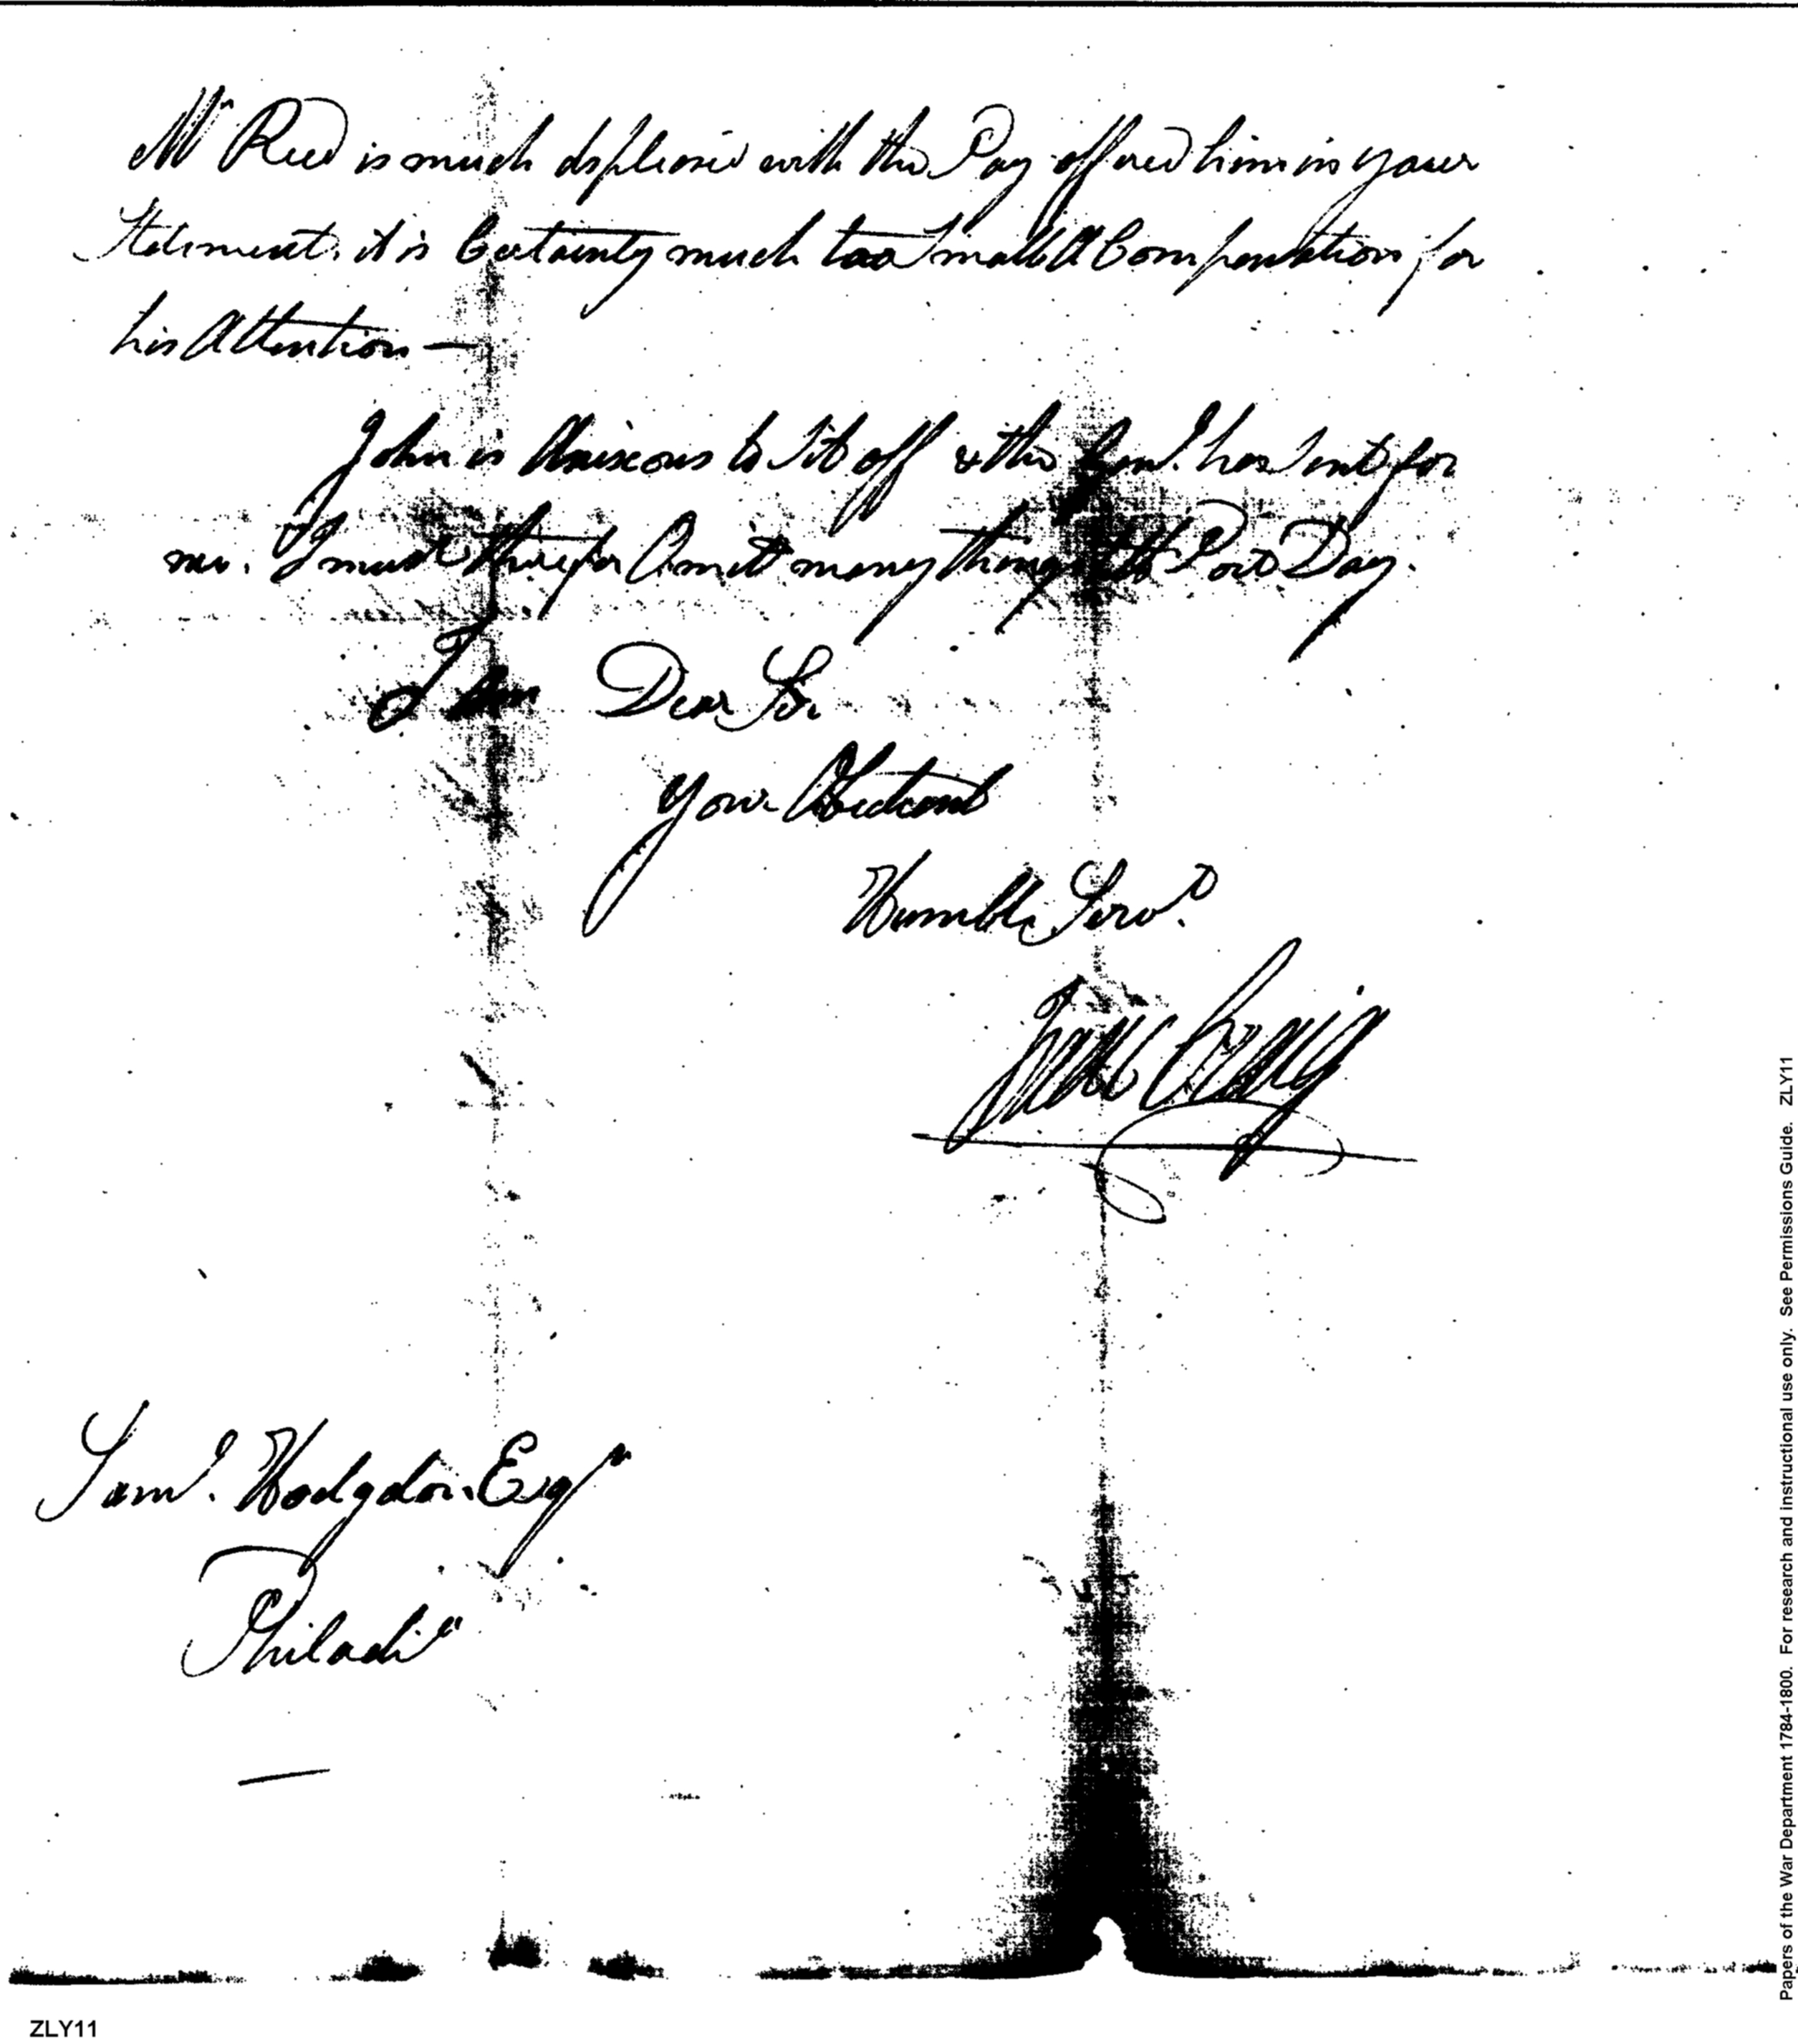 Mr Reed is much displeased with the Pay offered him in your
Statement, it is Certainly much too Small A Compensation for
his Attention —
John is Anxious to Set off & the Genl. has Sent for
me. I must therefor Omitt many things till Post Day.
I am Dear Sir
your Obedient
Humble Servt.
Isaac Craig
Saml. Hodgdon Esqr
Philada
ZLY11
Papers of the War Department 1784-1800. For research and instructional use only. See Permissions Guide. ZLY11